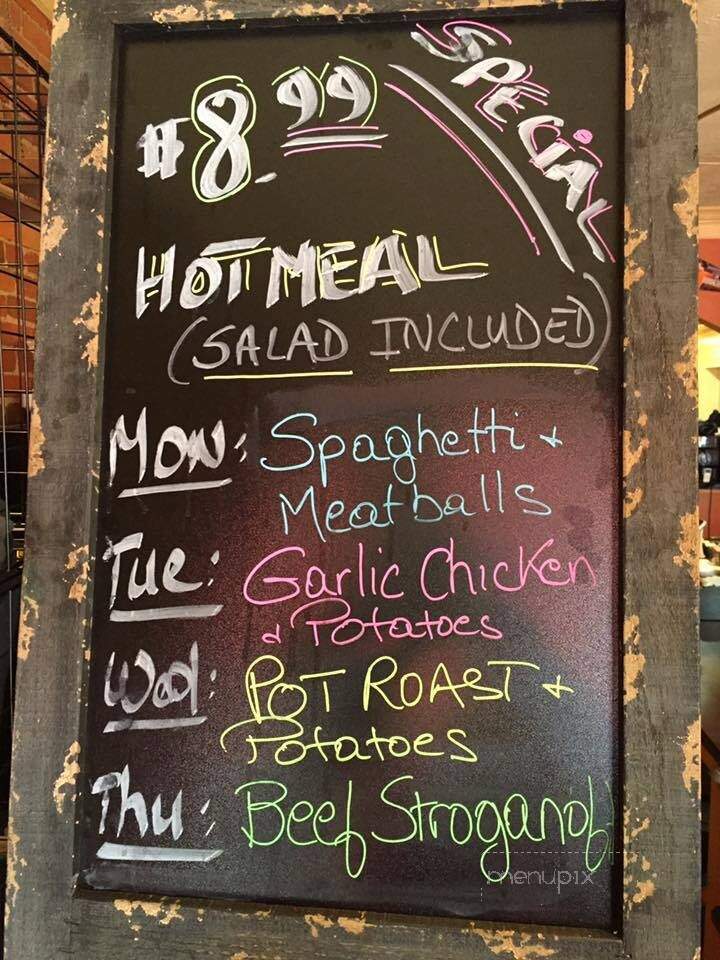 $8.99
SPECIAL
HOT MEAL
(SALAD INCLUDED)
Mon: Spaghetti +
Meatballs
Tue: Garlic Chicken
& Potatoes
Wed: POT ROAST +
Potatoes
Thu: Beef Stroganoff
menupix